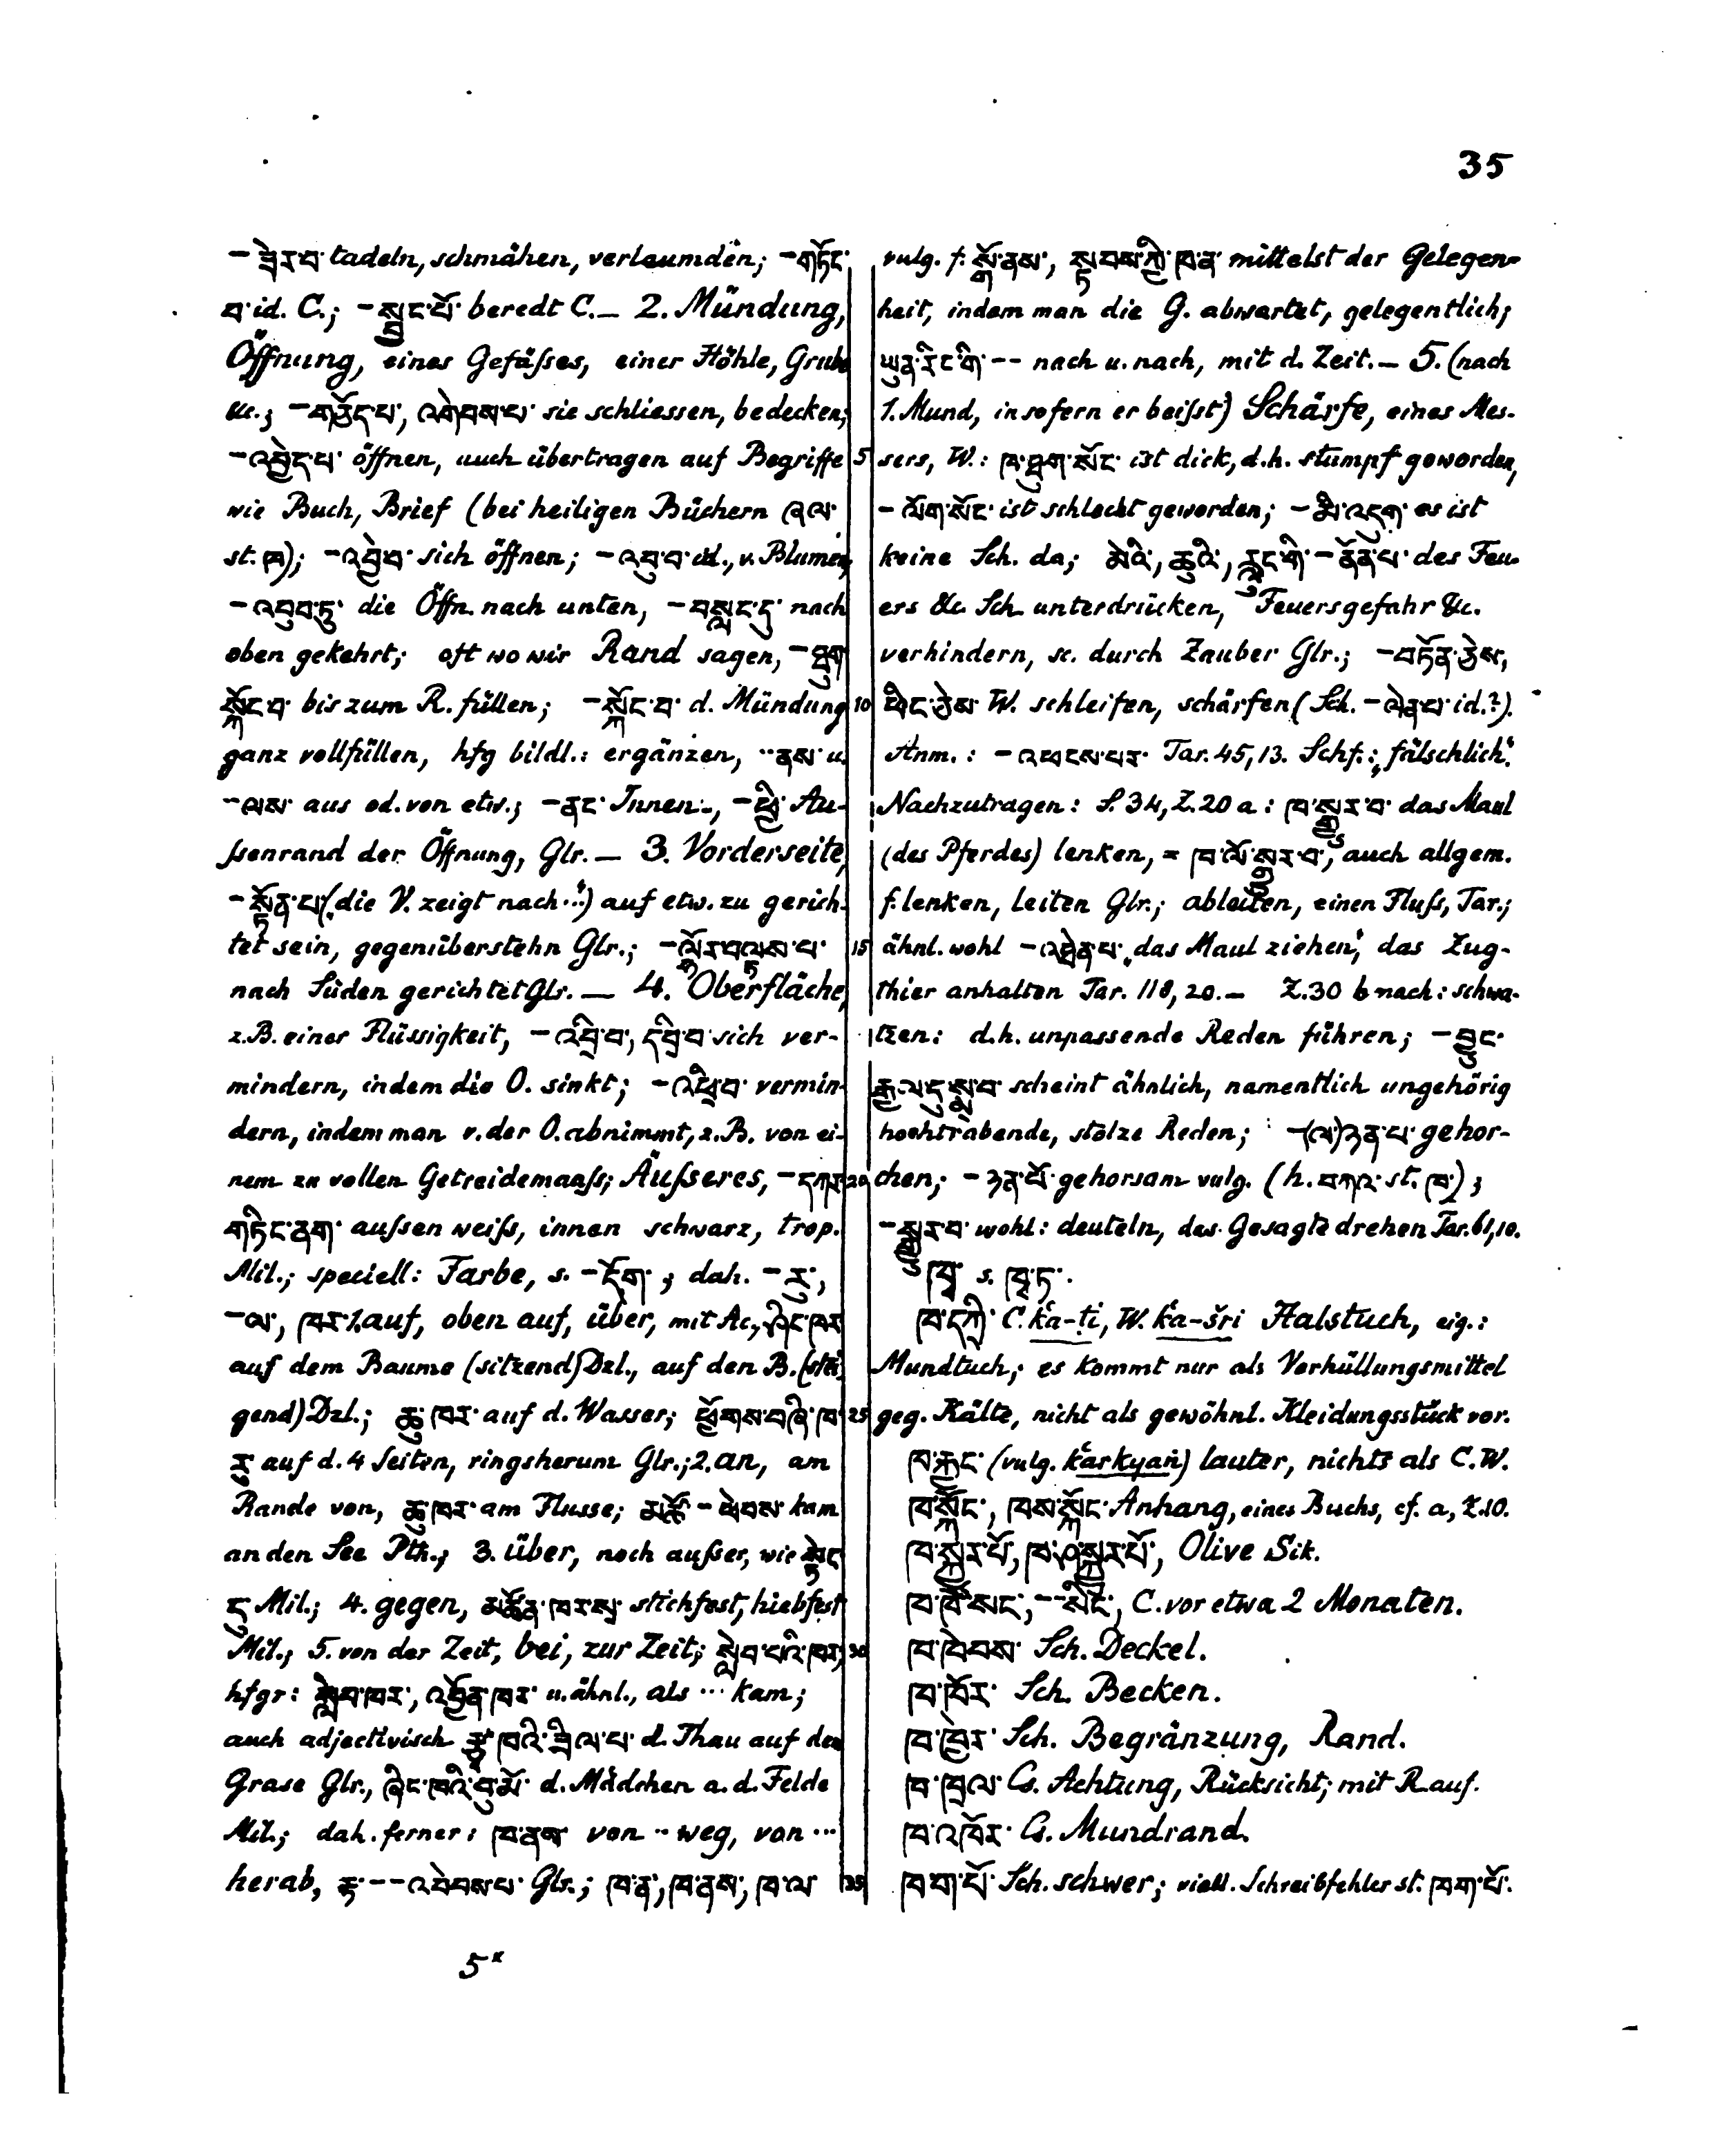 35
-ཟེར་བ་ tadeln, schmähen, verleumden; -གཏོང་
བ་ id. C.; -སྦྱང་པོ་ beredt C.— 2. Mündung,
Öffnung, eines Gefäſses, einer Höhle, Grube
&c.; -གཅོད་པ་, འགེབས་པ་ sie schliessen, bedecken;
-འབྱེད་པ་ öffnen, auch übertragen auf Begriffe
wie Buch, Brief (bei heiligen Büchern ཞལ་
st. ཁ); -འབྱེ་བ་ sich öffnen; -འབུ་བ་ id., v. Blumen,
-འབུབ་ཏུ་ die Öffn. nach unten, -བསླང་དུ་ nach
oben gekehrt; oft wo wir Rand sagen, -ཐུག་
སྐོང་བ་ bis zum R. füllen; -སྐོང་བ་ d. Mündung
ganz vollfüllen, hfg bildl.: ergänzen, ··ནས་ u.
-ལས་ aus od. von etw.; -ནང་ Innen-, -ཕྱི་ Au-
ſsenrand der Öffnung, Glr.— 3. Vorderseite,
-སྟོན་པ་ („die V. zeigt nach…“) auf etw. zu gerich-
tet sein, gegenüberstehn Glr.; -ལྷོར་བལྟས་པ་
nach Süden gerichtet Glr.— 4. Oberfläche,
z.B. einer Flüssigkeit, -འབྲི་བ་, དབྲི་བ་ sich ver-
mindern, indem die O. sinkt; -འཕྲི་བ་ vermin-
dern, indem man v. der O. abnimmt, z.B. von ei-
nem zu vollen Getreidemaaſs; Äuſseres, -དཀར་
གཏིང་ནག་ aussen weiſs, innen schwarz, trop.
Mil.; speciell: Farbe, s. -དོག་; dah. -རུ་,
-ལ་, ཁར་ 1. auf, oben auf, über, mit Ac., ཤིང་ཁར་
auf dem Baume (sitzend) Dzl., auf den B. (stei-
gend) Dzl.; ཆུ་ཁར་ auf d. Wasser; ཕྱོགས་བཞི་ཁ་
རུ་ auf d. 4 Seiten, ringsherum Glr.; 2. an, am
Rande von, ཆུ་ཁར་ am Flusse; མཚོ་-ཕེབས་ kam
an den See Pth.; 3. über, noch auſser, wie སྟེང་
དུ་ Mil.; 4. gegen, མཚོན་ཁར་སྲ་ stichfest, hiebfest
Mil.; 5. von der Zeit, bei, zur Zeit; སླེབ་པའི་ཁར་,
hfgr: སླེབ་ཁར་, འབྱོན་ཁར་ u. ähnl., als … kam;
auch adjectivisch རྩྭ་ཁའི་ཟིལ་པ་ d. Thau auf dem
Grase Glr., ཞིང་ཁའི་བུ་མོ་ d. Mädchen a. d. Felde
Mil.; dah. ferner: ཁ་ནས་ von ·· weg, von ···
herab, རྟ་--འབེབས་པ་ Glr.; ཁ་ན་, ཁ་ནས་, ཁ་ལ་
vulg. f. སྒོ་ནས་, སྟབས་ཀྱི་ཁ་ན་ mittelst der Gelegen-
heit, indem man die G. abwartet, gelegentlich;
ཡུན་རིང་གི་-- nach u. nach, mit d. Zeit.— 5. (nach
1. Mund, insofern er beiſst) Schärfe, eines Mes-
5 sers, W.: ཁ་ཐུག་སོང་ ist dick, d.h. stumpf geworden,
-ལོག་སོང་ ist schlecht geworden; -མི་འདུག་ es ist
keine Sch. da; མེའི་, ཆུའི་, རླུང་གི་-ནོན་པ་ des Feu-
ers &c. Sch. unterdrücken, Feuersgefahr &c.
verhindern, sc. durch Zauber Glr.; -བཏོན་ཅེས་,
10 ཕིང་ཅེས་ W. schleifen, schärfen (Sch. -ལེན་པ་ id.?).
Anm.: -འཕངས་པར་ Tar. 45,13. Schf.: „fälschlich“.
Nachzutragen: S. 34, Z. 20 a: ཁ་སྒྱུར་བ་ das Maul
(des Pferdes) lenken, = ཁ་ལོ་སྒྱུར་བ་, auch allgem.
f. lenken, leiten Glr.; ableiten, einen Fluſs, Tar.;
15 ähnl. wohl -འཐེན་པ་ „das Maul ziehen“, das Zug-
thier anhalten Tar. 118,20.— Z. 30 b nach: schwa-
tzen: d.h. unpassende Reden führen; -བྱང་
རྒྱལ་དུ་སྨྲ་བ་ scheint ähnlich, namentlich ungehörig
hochtrabende, stolze Reden; -(ལ་)ཉན་པ་ gehor-
20 chen; -ཉན་པོ་ gehorsam vulg. (h. བཀའ་ st. ཁ་);
-སྒྱུར་བ་ wohl: deuteln, das Gesagte drehen Tar. 61,10.
ཁྭ་ s. ཁྭ་ཏ་.
ཁ་དཀྲི་ C. ḱa-ṭi, W. ḱa-šri Halstuch, eig.:
Mundtuch; es kommt nur als Verhüllungsmittel
25 geg. Kälte, nicht als gewöhnl. Kleidungsstück vor.
ཁ་རྐྱང་ (vulg. ḱarkyaṅ) lauter, nichts als C. W.
ཁ་སྐོང་, ཁས་སྐོང་ Anhang, eines Buchs, cf. a, Z. 10.
ཁ་སྐྱུར་པོ་, Olive Sik.
ཁ་ཁོ་སང་, C. vor etwa 2 Monaten.
30 ཁ་ཁེབས་ Sch. Deckel.
ཁ་ཁོར་ Sch. Becken.
ཁ་ཁྱེར་ Sch. Begränzung, Rand.
ཁ་ཁྲལ་ Cs. Achtung, Rücksicht; mit R. auf.
ཁ་འཁོར་ Cs. Mundrand.
35 ཁ་ག་པོ་ Sch. schwer; viell. Schreibfehler st. ཁག་པོ་.
5*